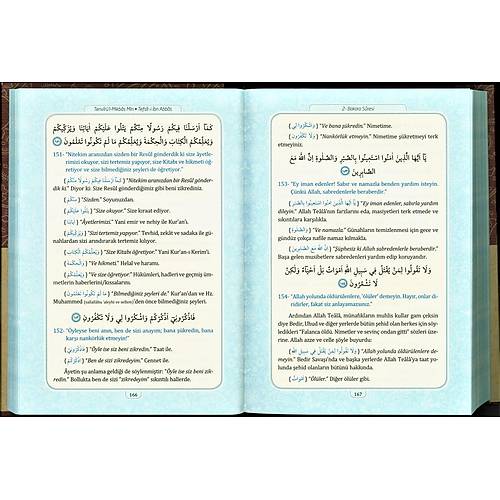 Tenvîrü'l-Mikbâs Min • Tefsîr-i İbn Abbâs
كَمَٓا اَرْسَلْنَا فٖيكُمْ رَسُولًا مِنْكُمْ يَتْلُوا عَلَيْكُمْ اٰيَاتِنَا وَيُزَكّٖيكُمْ
وَيُعَلِّمُكُمُ الْكِتَابَ وَالْحِكْمَةَ وَيُعَلِّمُكُمْ مَا لَمْ تَكُونُوا تَعْلَمُونَ
151- "Nitekim aranızdan sizden bir Resûl gönderdik ki size âyetle-
rimizi okuyor, sizi tertemiz yapıyor, size Kitabı ve hikmeti öğ-
retiyor ve size bilmediğiniz şeyleri de öğretiyor."
"Nitekim aranızdan size bir Resûl gönder-
dik ki." Diyor ki: Size Resûl gönderdiğimiz gibi beni zikrediniz.
(مِنْكُمْ) "Sizden." Soyunuzdan.
(يَتْلُوا عَلَيْكُمْ) "Size okuyor." Size kıraat ediyor.
(اٰيَاتِنَا) "Âyetlerimizi." Yani emir ve yasağı.
(وَيُزَكّٖيكُمْ) "Sizi tertemiz yapıyor." Tevhid, zekât ve sadaka ile gü-
nahlardan sizi arındırarak temizler kılıyor.
(وَيُعَلِّمُكُمُ الْكِتَابَ) "Size Kitabı." Yani Kur'an-ı Kerim'i.
(وَالْحِكْمَةَ) "Ve hikmeti." Helal ve haramı.
(وَيُعَلِّمُكُمْ) "Ve size öğretiyor." Hükümleri, hadleri ve geçmiş üm-
metlerin haberlerini/kıssalarını.
(مَا لَمْ تَكُونُوا تَعْلَمُونَ) "Bilmediğiniz şeyleri de." Kur'an'dan ve Hz.
Muhammed (sallallâhu aleyhi ve sellem)'den önce bilmediğiniz şeyleri.
فَاذْكُرُونٖٓي اَذْكُرْكُمْ وَاشْكُرُوا لٖي وَلَا تَكْفُرُونِ
152- "Öyleyse beni anın, ben de sizi anayım; bana şükredin, bana
karşı nankörlük etmeyin!"
(فَاذْكُرُونٖٓي) "Öyle ise siz beni zikredin." Taat ile.
(اَذْكُرْكُمْ) "Ben de sizi zikredeyim." Cennet ile.
Âyetin şu anlama geldiği de söylenmiştir: "Öyle ise siz beni zik-
redin." Bollukta ben de sizi "zikredeyim" sıkıntılı hallerde.
166
2- Bakara Sûresi
(وَاشْكُرُوا لٖي) "Ve bana şükredin." Nimetime.
(وَلَا تَكْفُرُونِ) "Nankörlük etmeyin." Nimetime şükretmeyi terk
etmeyiniz.
يَٓا اَيُّهَا الَّذٖينَ اٰمَنُوا اسْتَعٖينُوا بِالصَّبْرِ وَالصَّلٰوةِ اِنَّ اللّٰهَ مَعَ
الصَّابِرٖينَ
153- "Ey iman edenler! Sabır ve namazla benden yardım isteyin.
Çünkü Allah, sabredenlerle beraberdir."
(يَٓا اَيُّهَا الَّذٖينَ اٰمَنُوا اسْتَعٖينُوا بِالصَّبْرِ) "Ey iman edenler, sabırla yardım
dileyin." Allah Teâlâ'nın farzlarını eda, masiyetleri terk etmede ve
sıkıntılara karşı.
(وَالصَّلٰوةِ) "Ve namazla." Günahların temizlenmesi için gece ve
gündüz çokça nafile namaz kılmakla.
(اِنَّ اللّٰهَ مَعَ الصَّابِرٖينَ) "Şüphesiz ki Allah sabredenlerle beraberdir."
Başa gelen musibetlere sabredenleri yardım edip koruyandır.
وَلَا تَقُولُوا لِمَنْ يُقْتَلُ فٖي سَبٖيلِ اللّٰهِ اَمْوَاتٌ بَلْ اَحْيَٓاءٌ وَلٰكِنْ
لَا تَشْعُرُونَ
154- "Allah yolunda öldürülenlere, 'ölüler' demeyin. Hayır, onlar di-
ridirler, fakat siz anlayamazsınız."
Ardından Allah Teâlâ, münafıkların muhlis kullar gam çeksin
diye Bedir, Uhud ve diğer yerlerde bütün şehid olan herkes için söy-
ledikleri "Falanca öldü. Nimetler ve sevinç ondan gitti" sözleri üzeri-
ne. Allah azze ve celle şöyle buyurdu:
(وَلَا تَقُولُوا لِمَنْ يُقْتَلُ فٖي سَبٖيلِ اللّٰهِ) "Allah yolunda öldürülenlere de-
meyin." Bedir Savaşı'nda ve başka yerlerde Allah Teâlâ'ya taat yo-
lunda şehid olanların bütünü hakkında.
(اَمْوَاتٌ) "Ölüler." Diğer ölüler gibi.
167